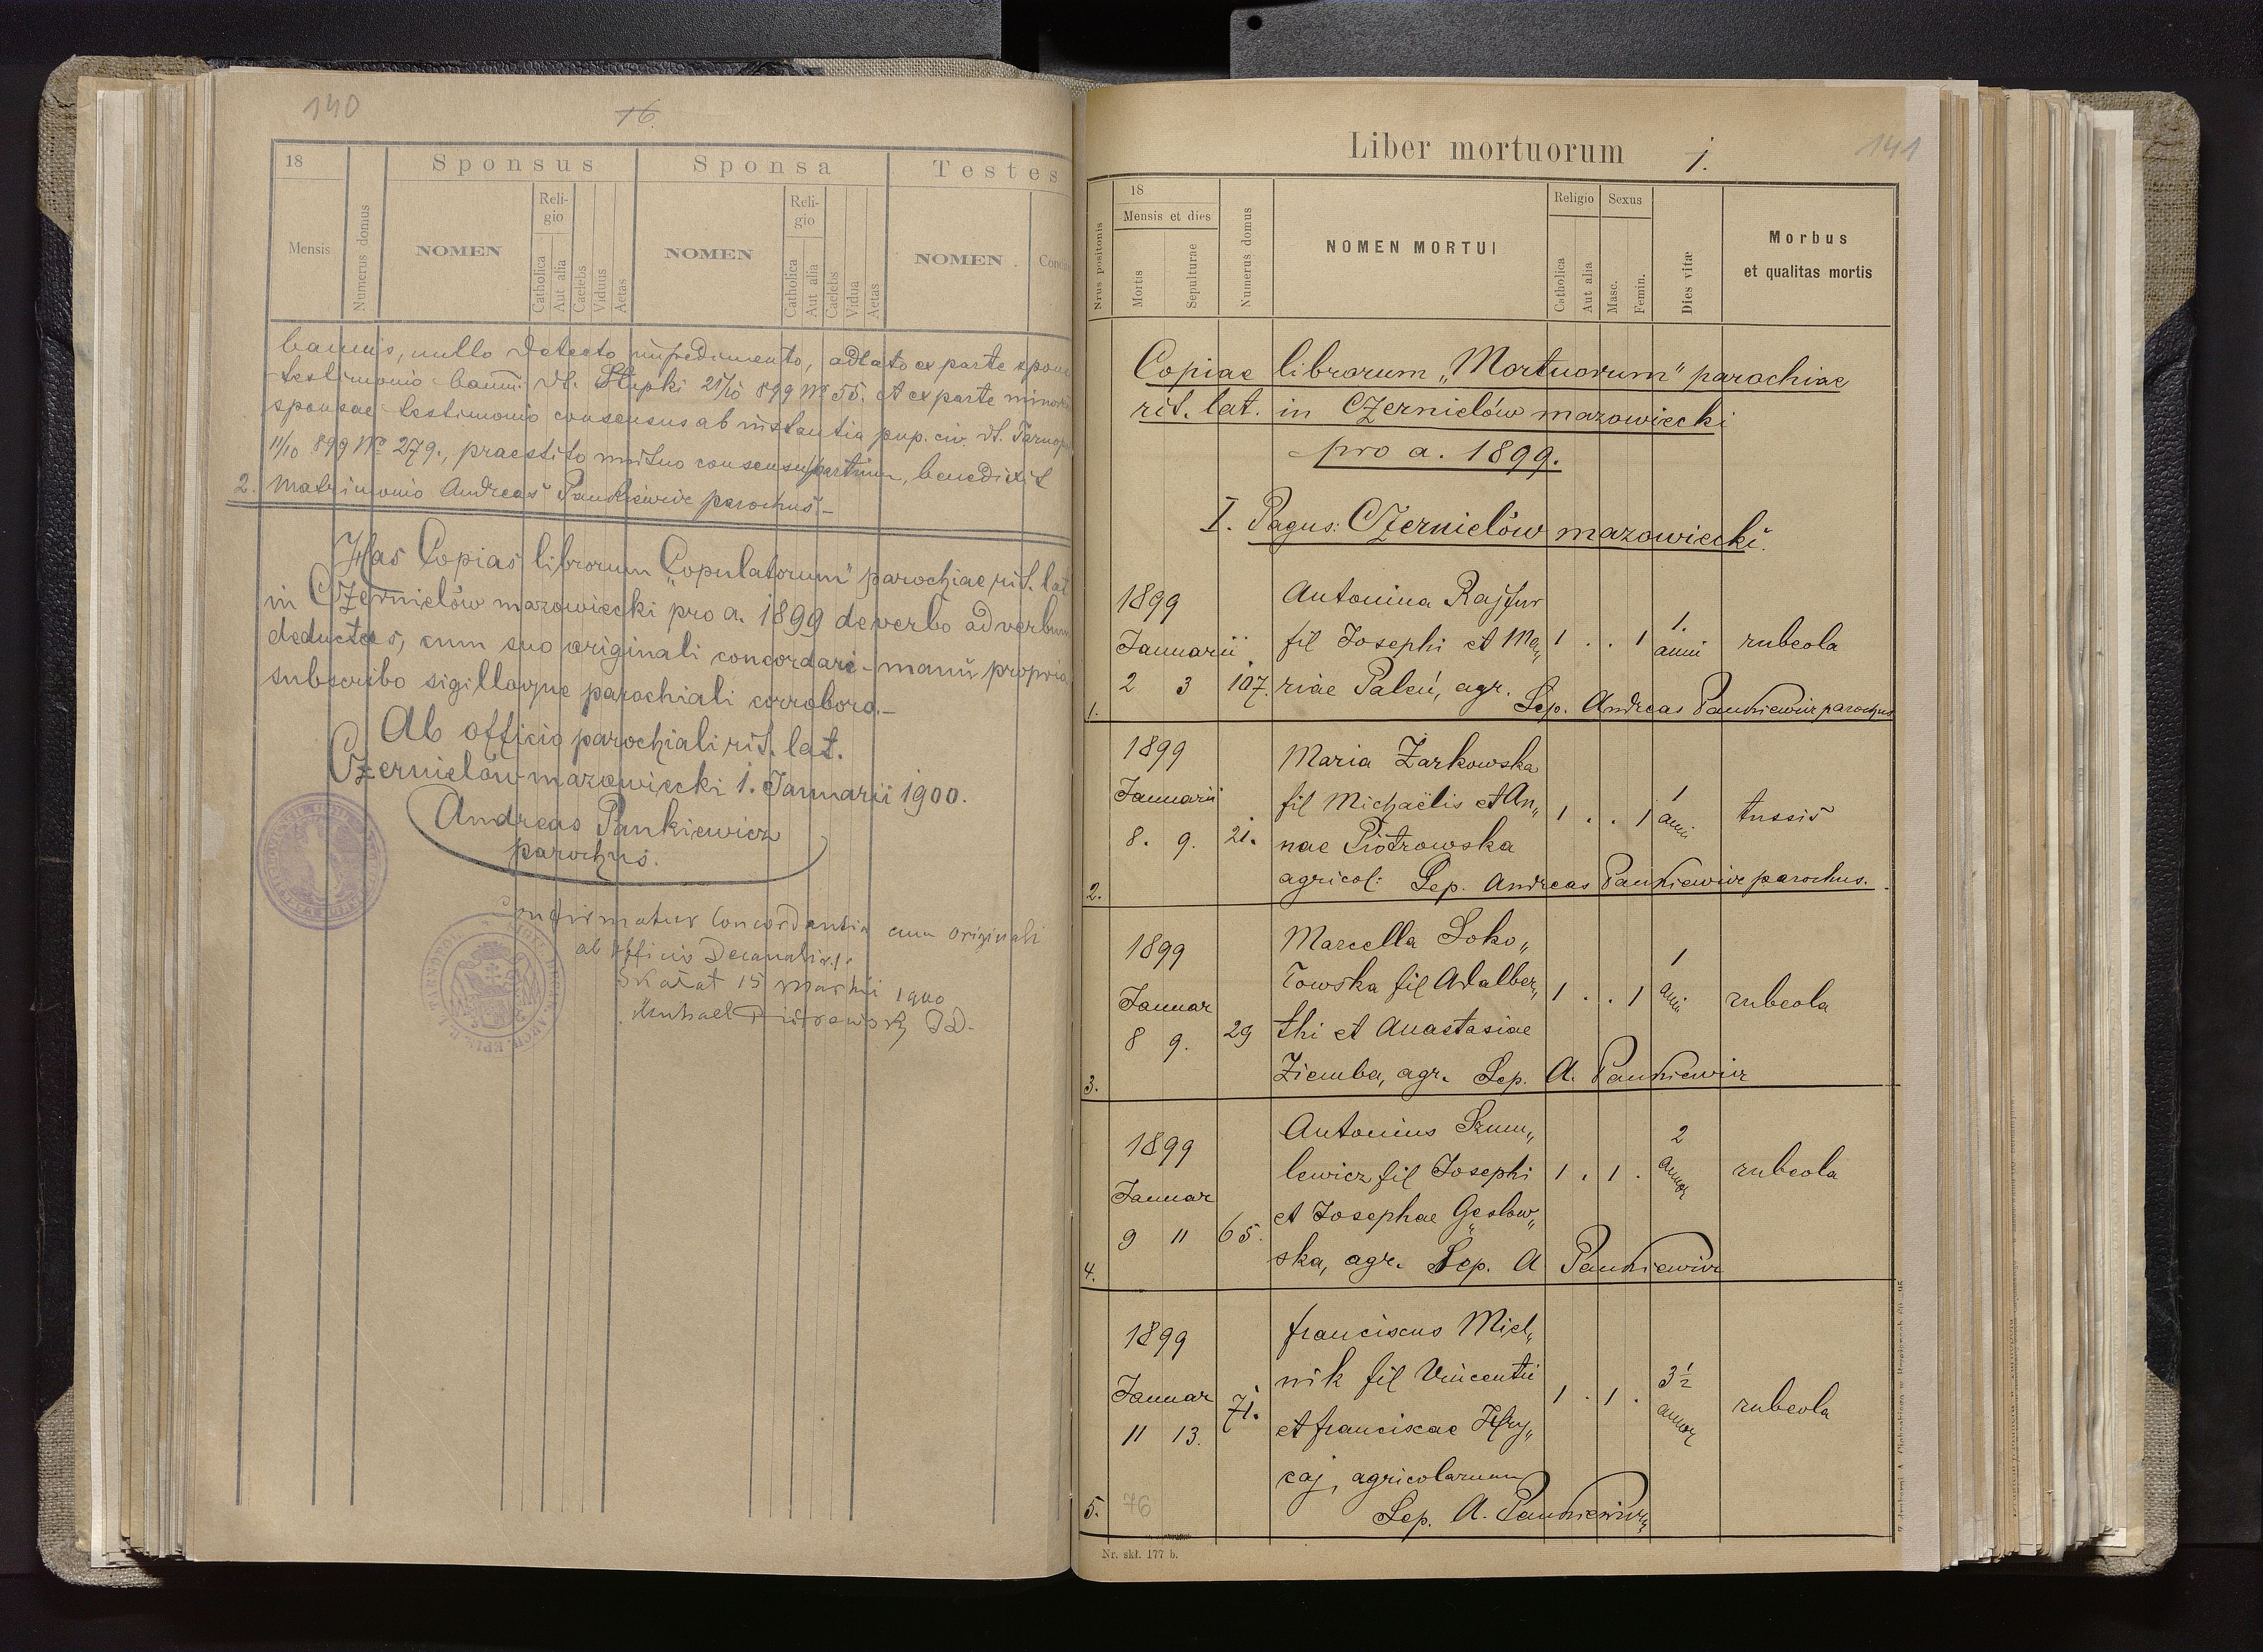 140
16
18
Sponsus
Sponsa
Testes
Mensis
Numerus domus
NOMEN
Religio
Catholica
Aut alia
Caelebs
Viduus
Aetas
NOMEN
Religio
Catholica
Aut alia
Caelebs
Vidua
Aetas
NOMEN
bannis, nullo detecto impedimento, adlato ex parte
testimonio bann. dt. 21/10 899 No 55. et ex parte
sponsae testimonio consensus ab instantia pup. civ. dt.
11/10 899 No 279., praestito mutuo consensu partium, benedixit
2. Matrimonio Andreas Pankiewicz parochus.-
Has Copias librorum „Copulatorum" parochiae rit. lat
in Czernielów mazowiecki pro a. 1899 de verbo ad verbum
deductas, cum suo originali concordari - manu propria
subscribo sigilloque parochiali corroboro.-
Ab officio parochiali rit. lat.
Czernielów mazowiecki 1. Januarii 1900.
Andreas Pankiewicz
parochus.
Confirmatur Concordantia cum originali
ab Officio Decanali
Skałat 15 Martii 1900
Michael
Liber mortuorum 1.
141
Nrus positonis
18
Mensis et dies
Mortis
Sepulturae
Numerus domus
NOMEN MORTUI
Religio
Catholica
Aut alia
Sexus
Masc.
Femin.
Dies vitæ
Morbus
et qualitas mortis
Copiae librorum „Mortuorum" parochiae
rit. lat. in Czernielów mazowiecki
pro a. 1899.
I. Pagus: Czernielów mazowiecki.
1899 Antonina Rajfur
Januarii fil Josephi et Ma„ 1 . . 1 1. anni rubeola
2 3 107. riae Paleń, agr.
1. Sep. Andreas Pankiewicz parochus
1899 Maria Żarkowska
Januarii fil Michaëlis et An„ 1 . . 1 1 anni tussis
8. 9. 21. nae Piotrowska
2. agricol: Sep. Andreas Pankiewicz parochus.
1899 Marcella Soko„
łowska fil Adalber„ 1 . . 1 1 anni rubeola
Januar
8 9. 29 thi et Anastasiae
3. Ziemba, agr. Sep. A. Pankiewicz
1899 Antonius Szum„
lewicz fil Josephi 1 . 1 . 2 annor rubeola
Januar
9 11 65. et Josephae Gęslow„
4. ska, agr. Sep. A Pankiewicz
1899 Franciscus Miel„
nik fil Vincentii
Januar 71. 1 . 1 . 3½ annor rubeola
11 13. et Franciscae Hry„
caj, agricolarum
5. 76 Sep. A. Pankiewicz
Nr. skł. 177 b.